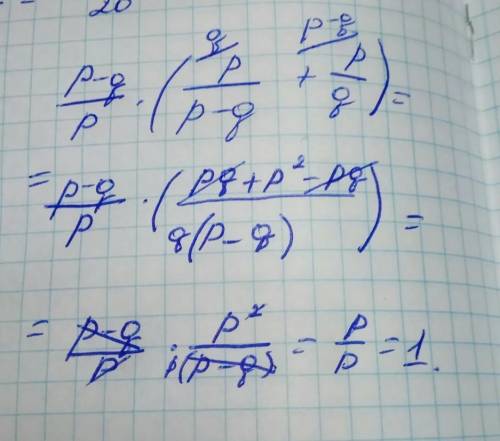 20
\frac{p-q}{p} \cdot \left( \frac{p}{p-q}^{q} + \frac{p}{q}^{p-q} \right) =
= \frac{p-q}{p} \cdot \left( \frac{pq + p^2 - pq}{q(p-q)} \right) =
= \frac{p-q}{p} \cdot \frac{p^2}{p(p-q)} = \frac{p}{p} = 1.